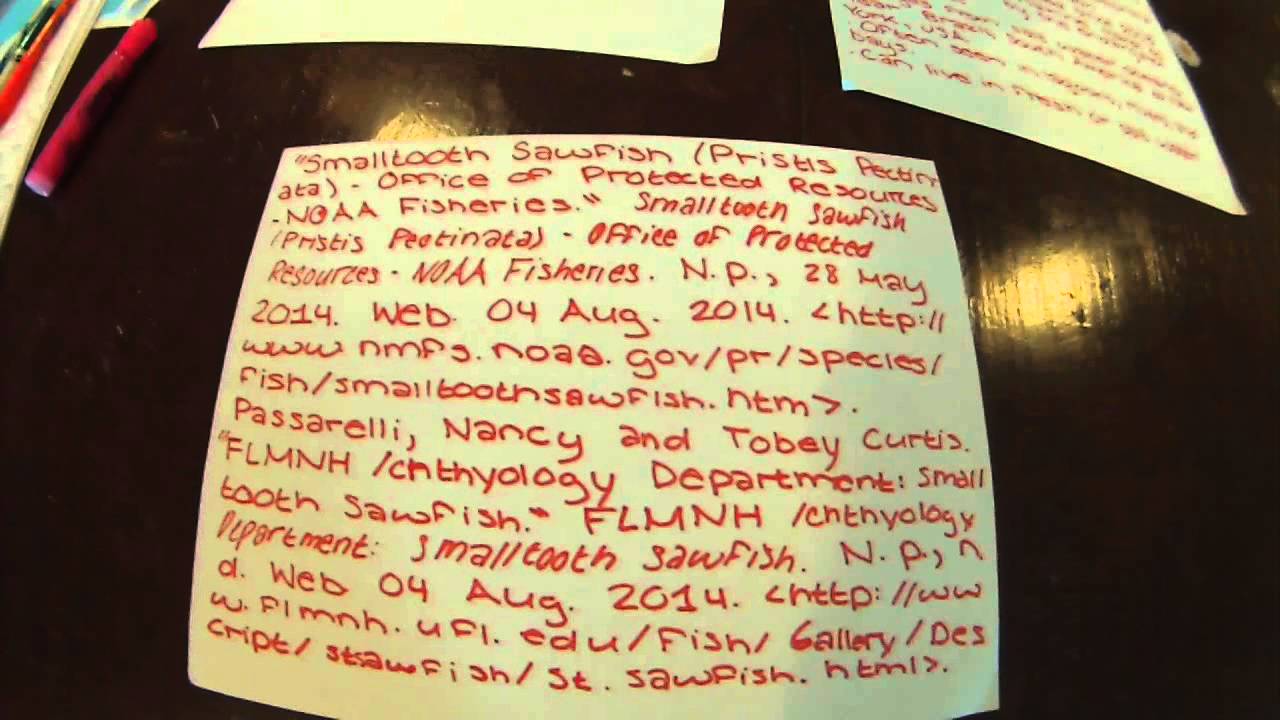 York, USA.
Often seen in
bays.
Can live in fresh or salt water
"Smalltooth Sawfish (Pristis Pectin
ata) - Office of Protected Resources
-NOAA Fisheries." Smalltooth Sawfish
(Pristis Pectinata) - Office of Protected
Resources - NOAA Fisheries. N.p., 28 May
2014. Web. 04 Aug. 2014. <http://
www.nmfs.noaa.gov/pr/species/
fish/smalltoothsawfish.htm>.
Passarelli, Nancy and Tobey Curtis.
"FLMNH Ichthyology Department: Small
tooth Sawfish." FLMNH Ichthyology
Department: Smalltooth Sawfish. N.p., n
d. Web 04 Aug. 2014. <http://ww
w.flmnh.ufl.edu/fish/Gallery/Des
cript/stsawfish/st.sawfish.html>.